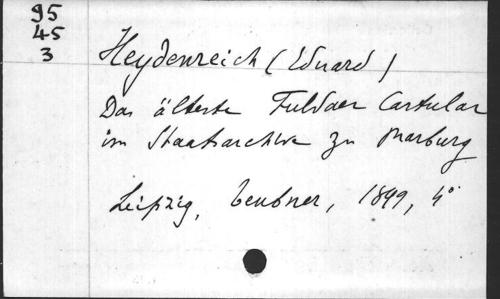 95
45
3
Heydenreich (Eduard)
Das älteste Fuldaer Cartular
im Staatsarchive zu Marburg
Leipzig, Teubner, 1899, 4°